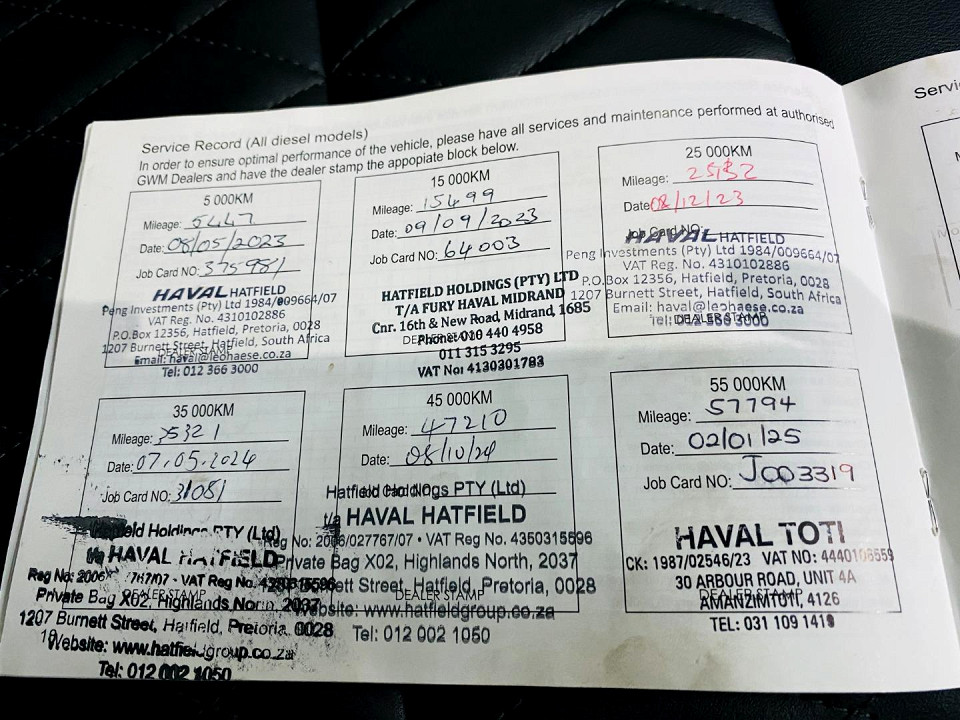 Service Record (All diesel models)
In order to ensure optimal performance of the vehicle, please have all services and maintenance performed at authorised
GWM Dealers and have the dealer stamp the appopiate block below.
5 000KM
Mileage: 5447
Date: 08/05/2023
Job Card NO: 375981
HAVAL HATFIELD
Peng Investments (Pty) Ltd 1984/009664/07
VAT Reg. No. 4310102886
P.O.Box 12356, Hatfield, Pretoria, 0028
1207 Burnett Street, Hatfield, South Africa
DEALER STAMP
Email: haval@leohaese.co.za
Tel: 012 366 3000
15 000KM
Mileage: 15499
Date: 09/09/2023
Job Card NO: 64003
HATFIELD HOLDINGS (PTY) LTD
T/A FURY HAVAL MIDRAND
Cnr. 16th & New Road, Midrand, 1685
DEALER STAMP
Phone: 010 440 4958
011 315 3295
VAT No: 4130301783
25 000KM
Mileage: 25132
Date: 08/12/23
Job Card NO:
HAVAL HATFIELD
Peng Investments (Pty) Ltd 1984/009664/07
VAT Reg. No. 4310102886
P.O.Box 12356, Hatfield, Pretoria, 0028
1207 Burnett Street, Hatfield, South Africa
Email: haval@leohaese.co.za
DEALER STAMP
Tel: 012 366 3000
35 000KM
Mileage: 35321
Date: 07.05.2024
Job Card NO: 31081
Hatfield Holdings PTY (Ltd)
t/a HAVAL HATFIELD
Reg No: 2006 /767/07 • VAT Reg No.
Private Bag X02, Highlands North, 2037
DEALER STAMP
1207 Burnett Street, Hatfield, Pretoria, 0028
Website: www.hatfieldgroup.co.za
Tel: 012 002 1050
45 000KM
Mileage: 47210
Date: 08/10/24
Job Card NO:
Hatfield Holdings PTY (Ltd)
t/a HAVAL HATFIELD
Reg No: 2006/027767/07 • VAT Reg No. 4350315596
Private Bag X02, Highlands North, 2037
Burnett Street, Hatfield, Pretoria, 0028
DEALER STAMP
Website: www.hatfieldgroup.co.za
Tel: 012 002 1050
55 000KM
Mileage: 57794
Date: 02/01/25
Job Card NO: J003319
HAVAL TOTI
CK: 1987/02546/23 VAT NO: 4440108559
30 ARBOUR ROAD, UNIT 4A
DEALER STAMP
AMANZIMTOTI, 4126
TEL: 031 109 1419